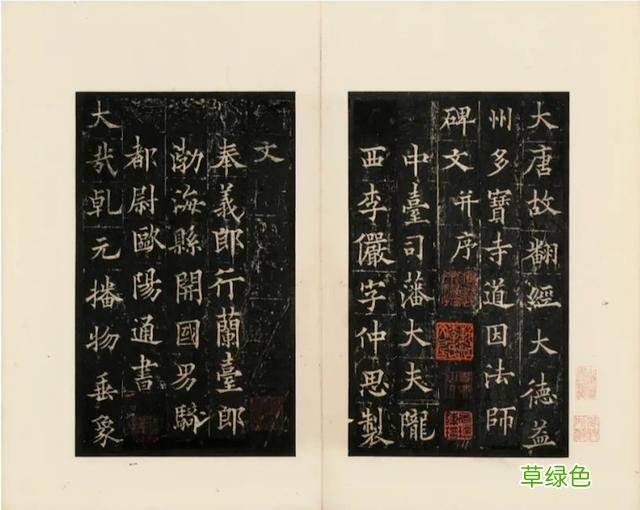 大唐故翻經大德益
州多寶寺道因法師
碑文并序
中臺司藩大夫隴
西李儼字仲思製
文
奉義郎行蘭臺郎
渤海縣開國男騎
都尉歐陽通書
大哉乹元播物垂象
草绿色